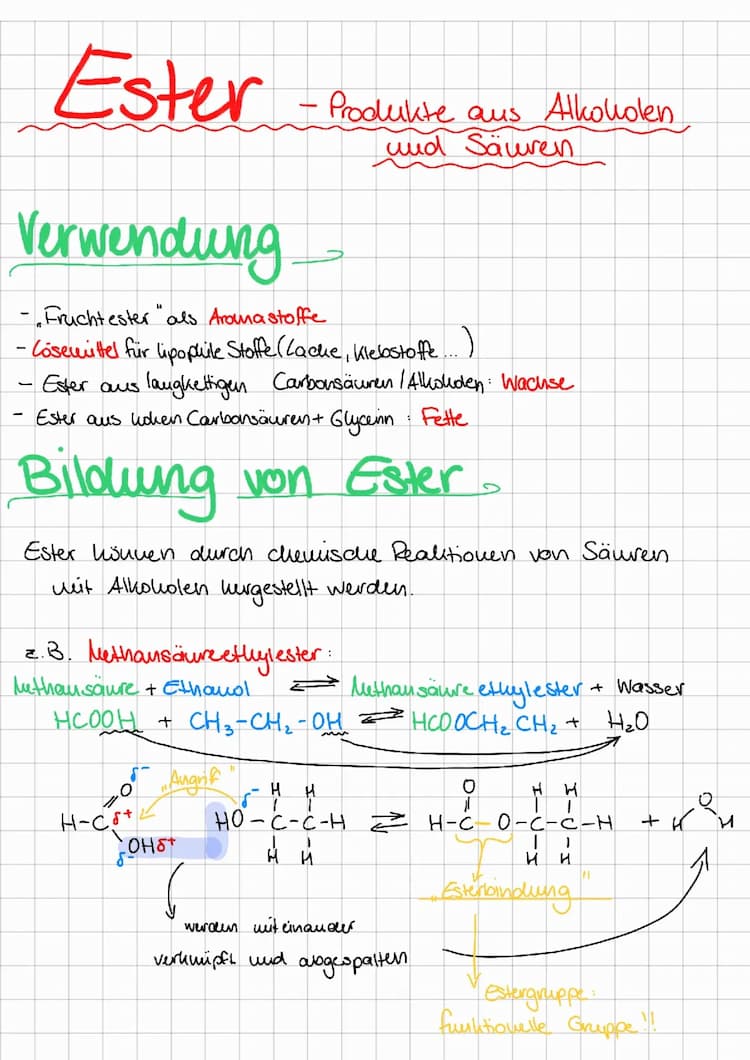 Ester - Produkte aus Alkoholen
und Säuren
Verwendung
- „Fruchtester" als Aromastoffe
- Lösemittel für lipophile Stoffe (Lacke, Klebstoffe ...)
- Ester aus langkettigen Carbonsäuren/Alkoholen: Wachse
- Ester aus hohen Carbonsäuren + Glycerin : Fette
Bildung von Ester
Ester können durch chemische Reaktionen von Säuren
mit Alkoholen hergestellt werden.
z.B. Methansäureethylester:
Methansäure + Ethanol ⇌ Methansäureethylester + Wasser
HCOOH + CH₃-CH₂-OH ⇌ HCOOCH₂CH₂ + H₂O
δ- „Angriff" δ-
O H H O H H O
H-C δ+ HO-C-C-H ⇌ H-C-O-C-C-H + H H
OH δ+
δ- H H H H
„Esterbindung"
werden miteinander
verknüpft und abgespalten
Estergruppe:
funktionelle Gruppe!!